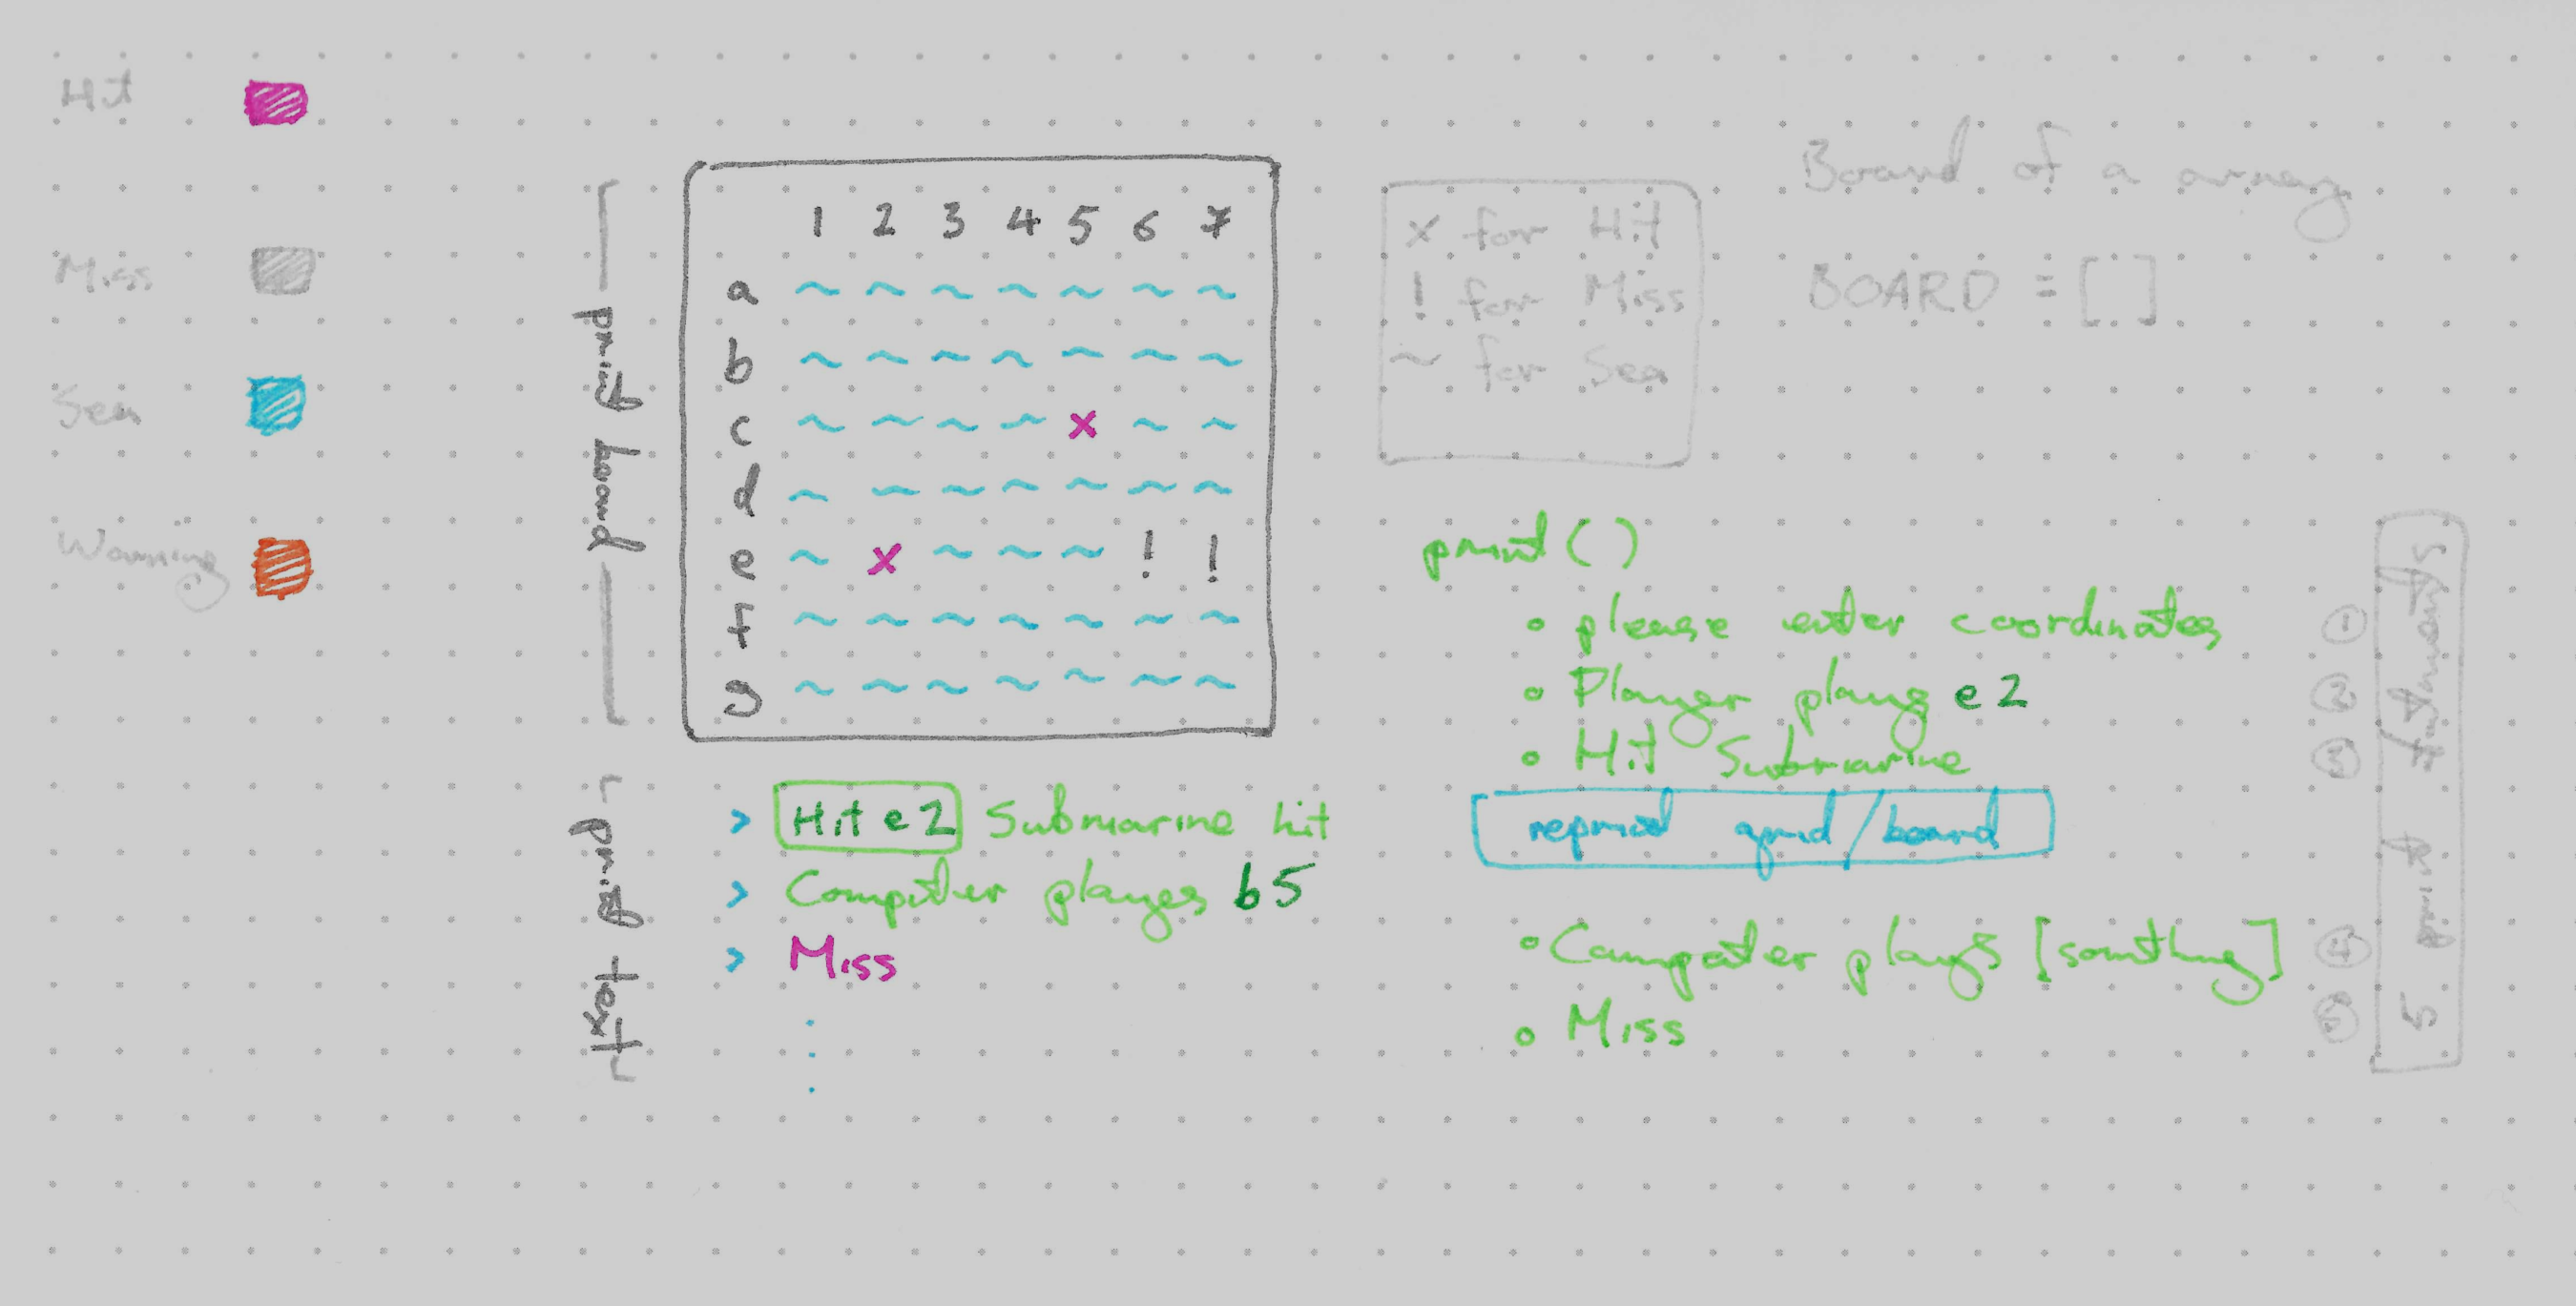 Hit
Miss
Sea
Warning
print board
1 2 3 4 5 6 7
a ~ ~ ~ ~ ~ ~ ~
b ~ ~ ~ ~ ~ ~ ~
c ~ ~ ~ ~ x ~ ~
d ~ ~ ~ ~ ~ ~ ~
e ~ x ~ ~ ~ ! !
f ~ ~ ~ ~ ~ ~ ~
g ~ ~ ~ ~ ~ ~ ~
print text
> Hit e2 Submarine hit
> Computer playes b5
> Miss
x for Hit
! for Miss
~ for Sea
Board of a array
BOARD = [ ]
print()
• please enter coordinates ①
• Player plays e2 ②
• Hit Submarine ③
reprint grid/board
• Computer plays [somthing] ④
• Miss ⑤
5 print statments